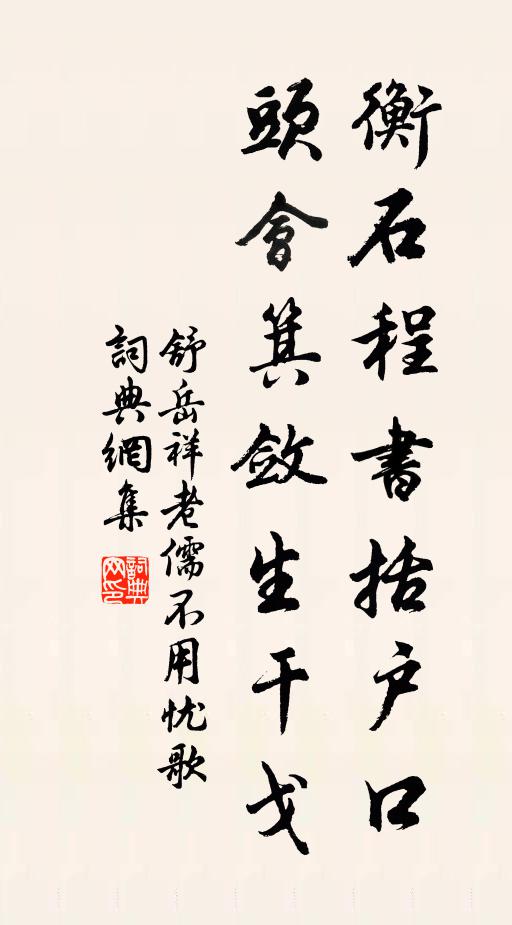 衡石程書括户口
頭會箕斂生干戈
舒岳祥老儒不用忧歌
詞典網集
詞典网印